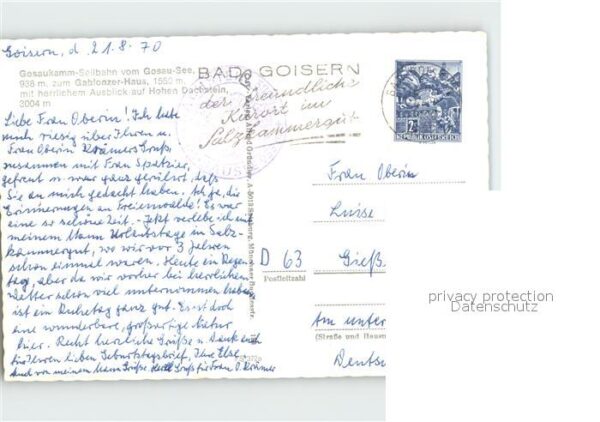 Goisern, d. 21.8.70
Gosaukamm-Seilbahn vom Gosau-See,
938 m, zum Gablonzer-Haus, 1550 m,
mit herrlichem Ausblick auf Hohen Dachstein,
2004 m
Liebe Frau Oberin! Ich habe
mich riesig über Ihren u.
Frau Oberin Krämers Gruß
zusammen mit Frau Spatzier,
gefreut u. war ganz gerührt, daß
Sie an mich gedacht haben. Ich ja, die
Erinnerungen an Freienwalde! Es war
eine so schöne Zeit. - Jetzt verlebe ich mit
meinem Mann Urlaubstage in Salz-
kammergut, wo wir vor 3 Jahren
schon einmal waren. Heute ein Regen-
tag, aber da wir vorher bei herrlichem
Wetter schon viel unternommen haben,
ist ein Ruhetag ganz gut. Es ist doch
eine wunderbare, großartige Natur
hier. Recht herzliche Grüße u. Dank auch
für Ihren lieben Geburtstagsbrief, Ihre Else
Auch von meinem Mann Grüße. Herzl. Gruß für Frau O. Krämer
BAD GOISERN
der freundliche
Kurort im
Salzkammergut
REPUBLIK ÖSTERREICH
Frau Oberin
Luise
D 63 Gieß
Postleitzahl
Am unter
(Straße und Hausn
Deutsc
privacy protection
Datenschutz